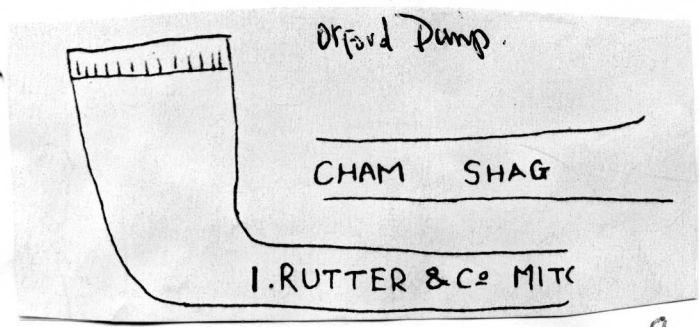 Orford Dump.
CHAM SHAG
I. RUTTER & Co MITC